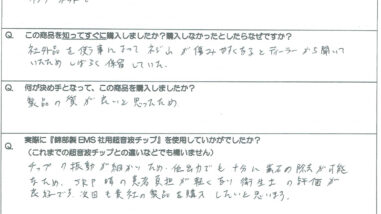 Q. この商品を知ってすぐに購入しましたか？購入しなかったとしたらなぜですか？
社外品を使う事によって ネジ山が傷みやすくなるとディーラーから聞いて
いたため しばらく保留していた。
Q. 何が決め手となって、この商品を購入しましたか？
製品の質が良いと思ったため
Q. 実際に『錦部製EMS社用超音波チップ』を使用していかがでしたか？
（これまでの超音波チップとの違いなどでも構いません）
チップの振動が細かいため、低出力でも十分に歯石の除去が可能
なため、SRP時の患者負担が軽くなり衛生士の評価が
良好です。次回も貴社の製品を購入したいと思います。